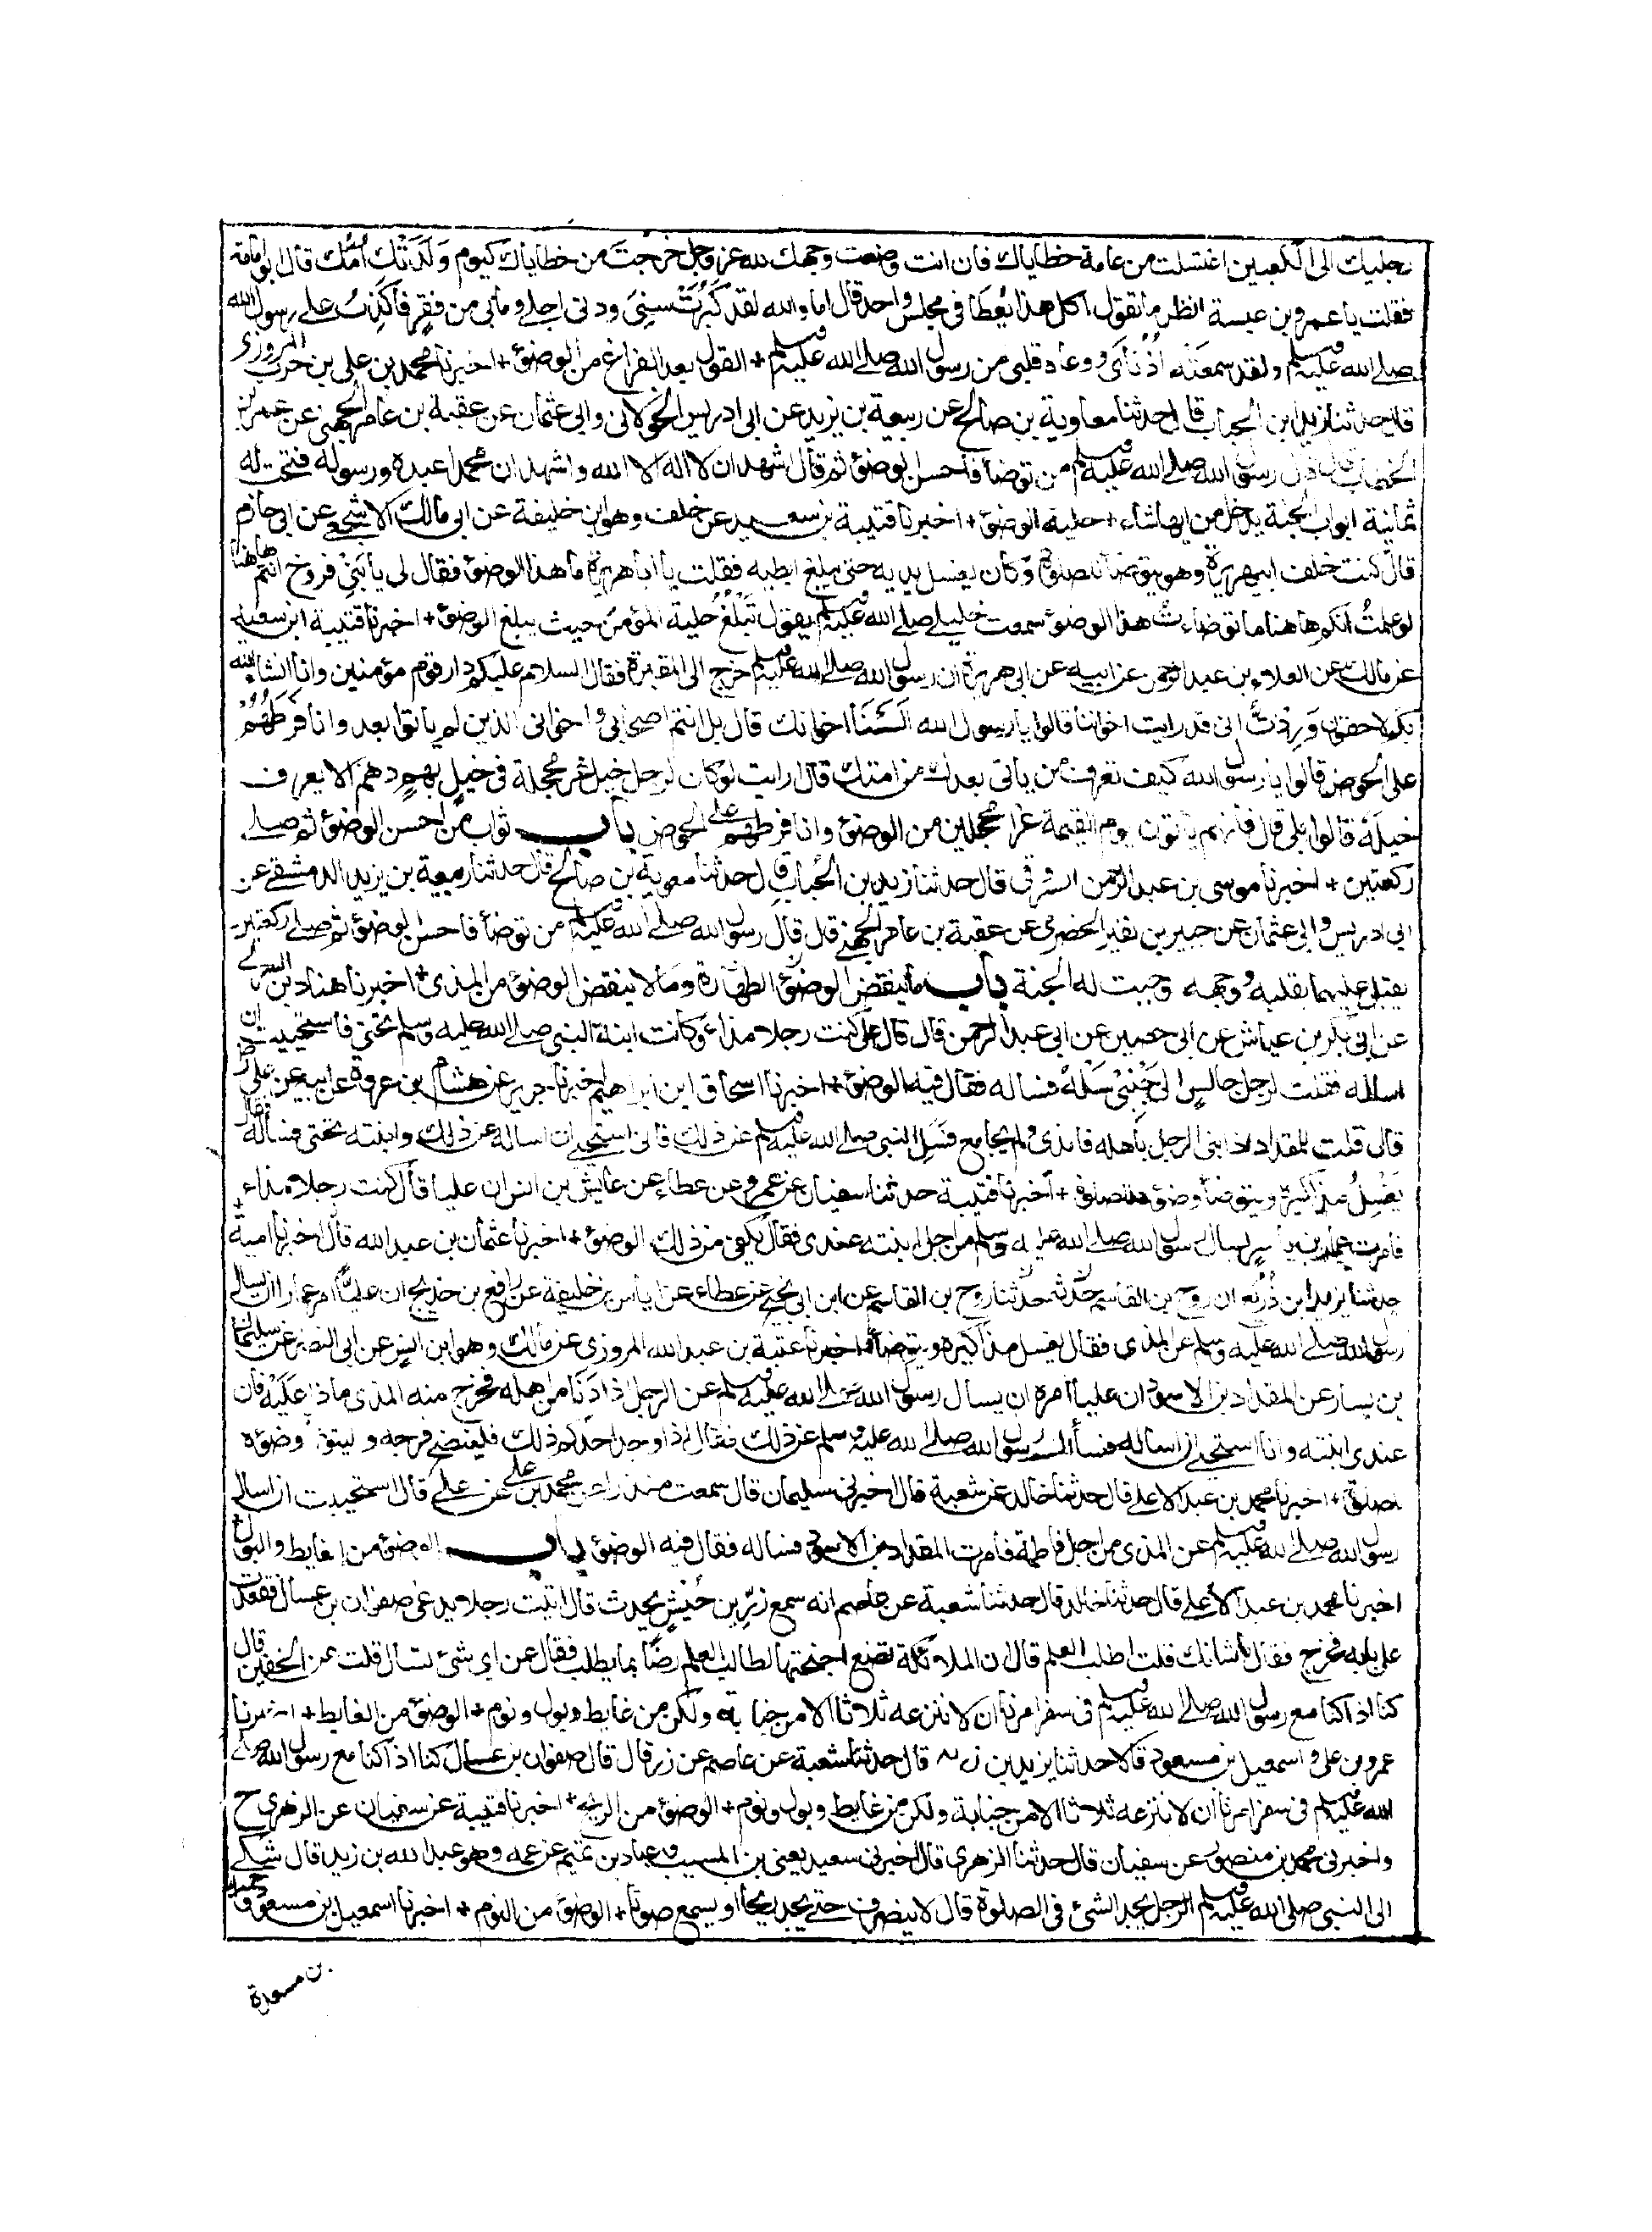 رجليك الى الكعبين اغتسلت من عامة خطاياك فان انت وضعت وجهك لله عز وجل خرجت من خطاياك كيوم ولدتك امك قال ابو امامة
فقلت يا عمرو بن عبسة انظر ما تقول اكل هذا يعطا في مجلس واحد قال اما والله لقد كبرت سني ودنى اجلي وما بي من فقر فاكذب على رسول الله
صلى الله عليه وسلم ولقد سمعته اذناي ووعاه قلبي من رسول الله صلى الله عليه وسلم + القول بعد الفراغ من الوضوء + اخبرنا محمد بن علي بن حرب المروزي
قال حدثنا زيد ابن الحباب قال حدثنا معاوية بن صالح عن ربيعة بن يزيد عن ابي ادريس الخولاني وابي عثمان عن عقبة بن عامر الجهني عن عمر بن
الخطاب قال قال رسول الله صلى الله عليه وسلم من توضأ فاحسن الوضوء ثم قال اشهد ان لا اله الا الله واشهد ان محمدا عبده ورسوله فتحت له
ثمانية ابواب الجنة يدخل من ايها شاء + حلية الوضوء + اخبرنا قتيبة بن سعيد عن خلف وهو ابن خليفة عن ابي مالك الاشجعي عن ابي حازم
قال كنت خلف ابي هريرة وهو يتوضأ للصلوة وكان يغسل يديه حتى يبلغ ابطيه فقلت يا ابا هريرة ما هذا الوضوء فقال لي يا بني فروخ انتم هاهنا
لو علمت انكم هاهنا ما توضاءت هذا الوضوء سمعت خليلي صلى الله عليه وسلم يقول تبلغ حلية المؤمن حيث يبلغ الوضوء + اخبرنا قتيبة ابن سعيد
عن مالك عن العلاء بن عبد الرحمن عن ابيه عن ابي هريرة ان رسول الله صلى الله عليه وسلم خرج الى المقبرة فقال السلام عليكم دار قوم مؤمنين وانا ان شاء الله
بكم لاحقون وددت اني قد رايت اخواننا قالوا يا رسول الله السنا اخوانك قال بل انتم اصحابي واخواني الذين لم ياتوا بعد وانا فرطهم
على الحوض قالوا يا رسول الله كيف تعرف من ياتي بعدك من امتك قال ارايت لو كان لرجل خيل غر محجلة في خيل بهم دهم الا يعرف
خيله قالوا بلى قال فانهم ياتون يوم القيمة غرا محجلين من الوضوء وانا فرطهم على الحوض باب ثواب من احسن الوضوء ثم صلى
ركعتين + اخبرنا موسى بن عبد الرحمن المسروقي قال حدثنا زيد بن الحباب قال حدثنا معوية بن صالح قال حدثنا ربيعة بن يزيد الدمشقي عن
ابي ادريس وابي عثمان عن جبير بن نفير الحضرمي عن عقبة بن عامر الجهني قال قال رسول الله صلى الله عليه وسلم من توضأ فاحسن الوضوء ثم صلى ركعتين
يقبل عليهما بقلبه ووجهه وجبت له الجنة باب ما ينقض الوضوء الطهارة وما لا ينقض الوضوء من المذي + اخبرنا هناد بن السري
عن ابي بكر بن عياش عن ابي حصين عن ابي عبد الرحمن قال قال علي كنت رجلا مذاء وكانت ابنة النبي صلى الله عليه وسلم تحتي فاستحييت ان
اساله فقلت لرجل جالس الى جنبي سله فساله فقال فيه الوضوء + اخبرنا اسحاق ابن ابراهيم اخبرنا جرير عن هشام بن عروة عن ابيه عن علي
قال قلت للمقداد اذا بنى الرجل باهله فامذى ولم يجامع فسل النبي صلى الله عليه وسلم عن ذلك فاني استحي ان اساله عن ذلك وابنته تحتي فسأله فقال
يغسل مذاكيره ويتوضأ وضوءه للصلوة + اخبرنا قتيبة حدثنا سفيان عن عمرو عن عطاء عن عايش بن انس ان عليا قال كنت رجلا مذاء
فامرت عمار بن ياسر يسال رسول الله صلى الله عليه وسلم من اجل ابنته عندي فقال يكفي من ذلك الوضوء + اخبرنا عثمان بن عبد الله قال اخبرنا امية
حدثنا يزيد ابن زريع ان روح بن القاسم حدثه حدثنا روح بن القاسم عن ابن ابي نجيح عن عطاء عن اياس بن خليفة عن رافع بن خديج ان عليا امر عمارا ان يسال
رسول الله صلى الله عليه وسلم عن المذي فقال يغسل مذاكيره ويتوضأ + اخبرنا عتبة بن عبد الله المروزي عن مالك وهو ابن انس عن ابي النضر عن سليمان
بن يسار عن المقداد بن الاسود ان عليا امره ان يسال رسول الله صلى الله عليه وسلم عن الرجل اذا دنا من اهله فخرج منه المذي ماذا عليه فان
عندي ابنته وانا استحي ان اساله فسألت رسول الله صلى الله عليه وسلم عن ذلك فقال اذا وجد احدكم ذلك فلينضح فرجه وليتوضأ وضوءه
للصلوة + اخبرنا محمد بن عبد الاعلى قال حدثنا خالد عن شعبة قال اخبرني سليمان قال سمعت منذرا عن محمد بن علي عن علي قال استحييت ان اسال
رسول الله صلى الله عليه وسلم عن المذي من اجل فاطمة فامرت المقداد بن الاسود فساله فقال فيه الوضوء باب الوضوء من الغايط والبول
اخبرنا محمد بن عبد الاعلى قال حدثنا خالد قال حدثنا شعبة عن عاصم انه سمع زر بن حبيش يحدث قال اتيت رجلا يدعى صفوان بن عسال فقعدت
على بابه فخرج فقال ما شانك قلت اطلب العلم قال ان الملائكة تضع اجنحتها لطالب العلم رضا بما يطلب فقال عن اي شئ تسال قلت عن الخفين قال
كنا اذا كنا مع رسول الله صلى الله عليه وسلم في سفر امرنا ان لا ننزعه ثلاثا الا من جنابة ولكن من غايط وبول ونوم + الوضوء من الغايط + اخبرنا
عمرو بن علي واسمعيل بن مسعود قالا حدثنا يزيد بن زريع قال حدثنا شعبة عن عاصم عن زر قال قال صفوان بن عسال كنا اذا كنا مع رسول الله صلى
الله عليه وسلم في سفر امرنا ان لا ننزعه ثلاثا الا من جنابة ولكن من غايط وبول ونوم + الوضوء من الريح + اخبرنا قتيبة عن سفيان عن الزهري ح
واخبرني محمد بن منصور عن سفيان قال حدثنا الزهري قال اخبرني سعيد يعني بن المسيب وعباد بن تميم عن عمه وهو عبد الله بن زيد قال شكي
الى النبي صلى الله عليه وسلم الرجل يجد الشئ في الصلوة قال لا ينصرف حتى يجد ريحا او يسمع صوتا + الوضوء من النوم + اخبرنا اسمعيل بن مسعود وحميد
بن مسعدة